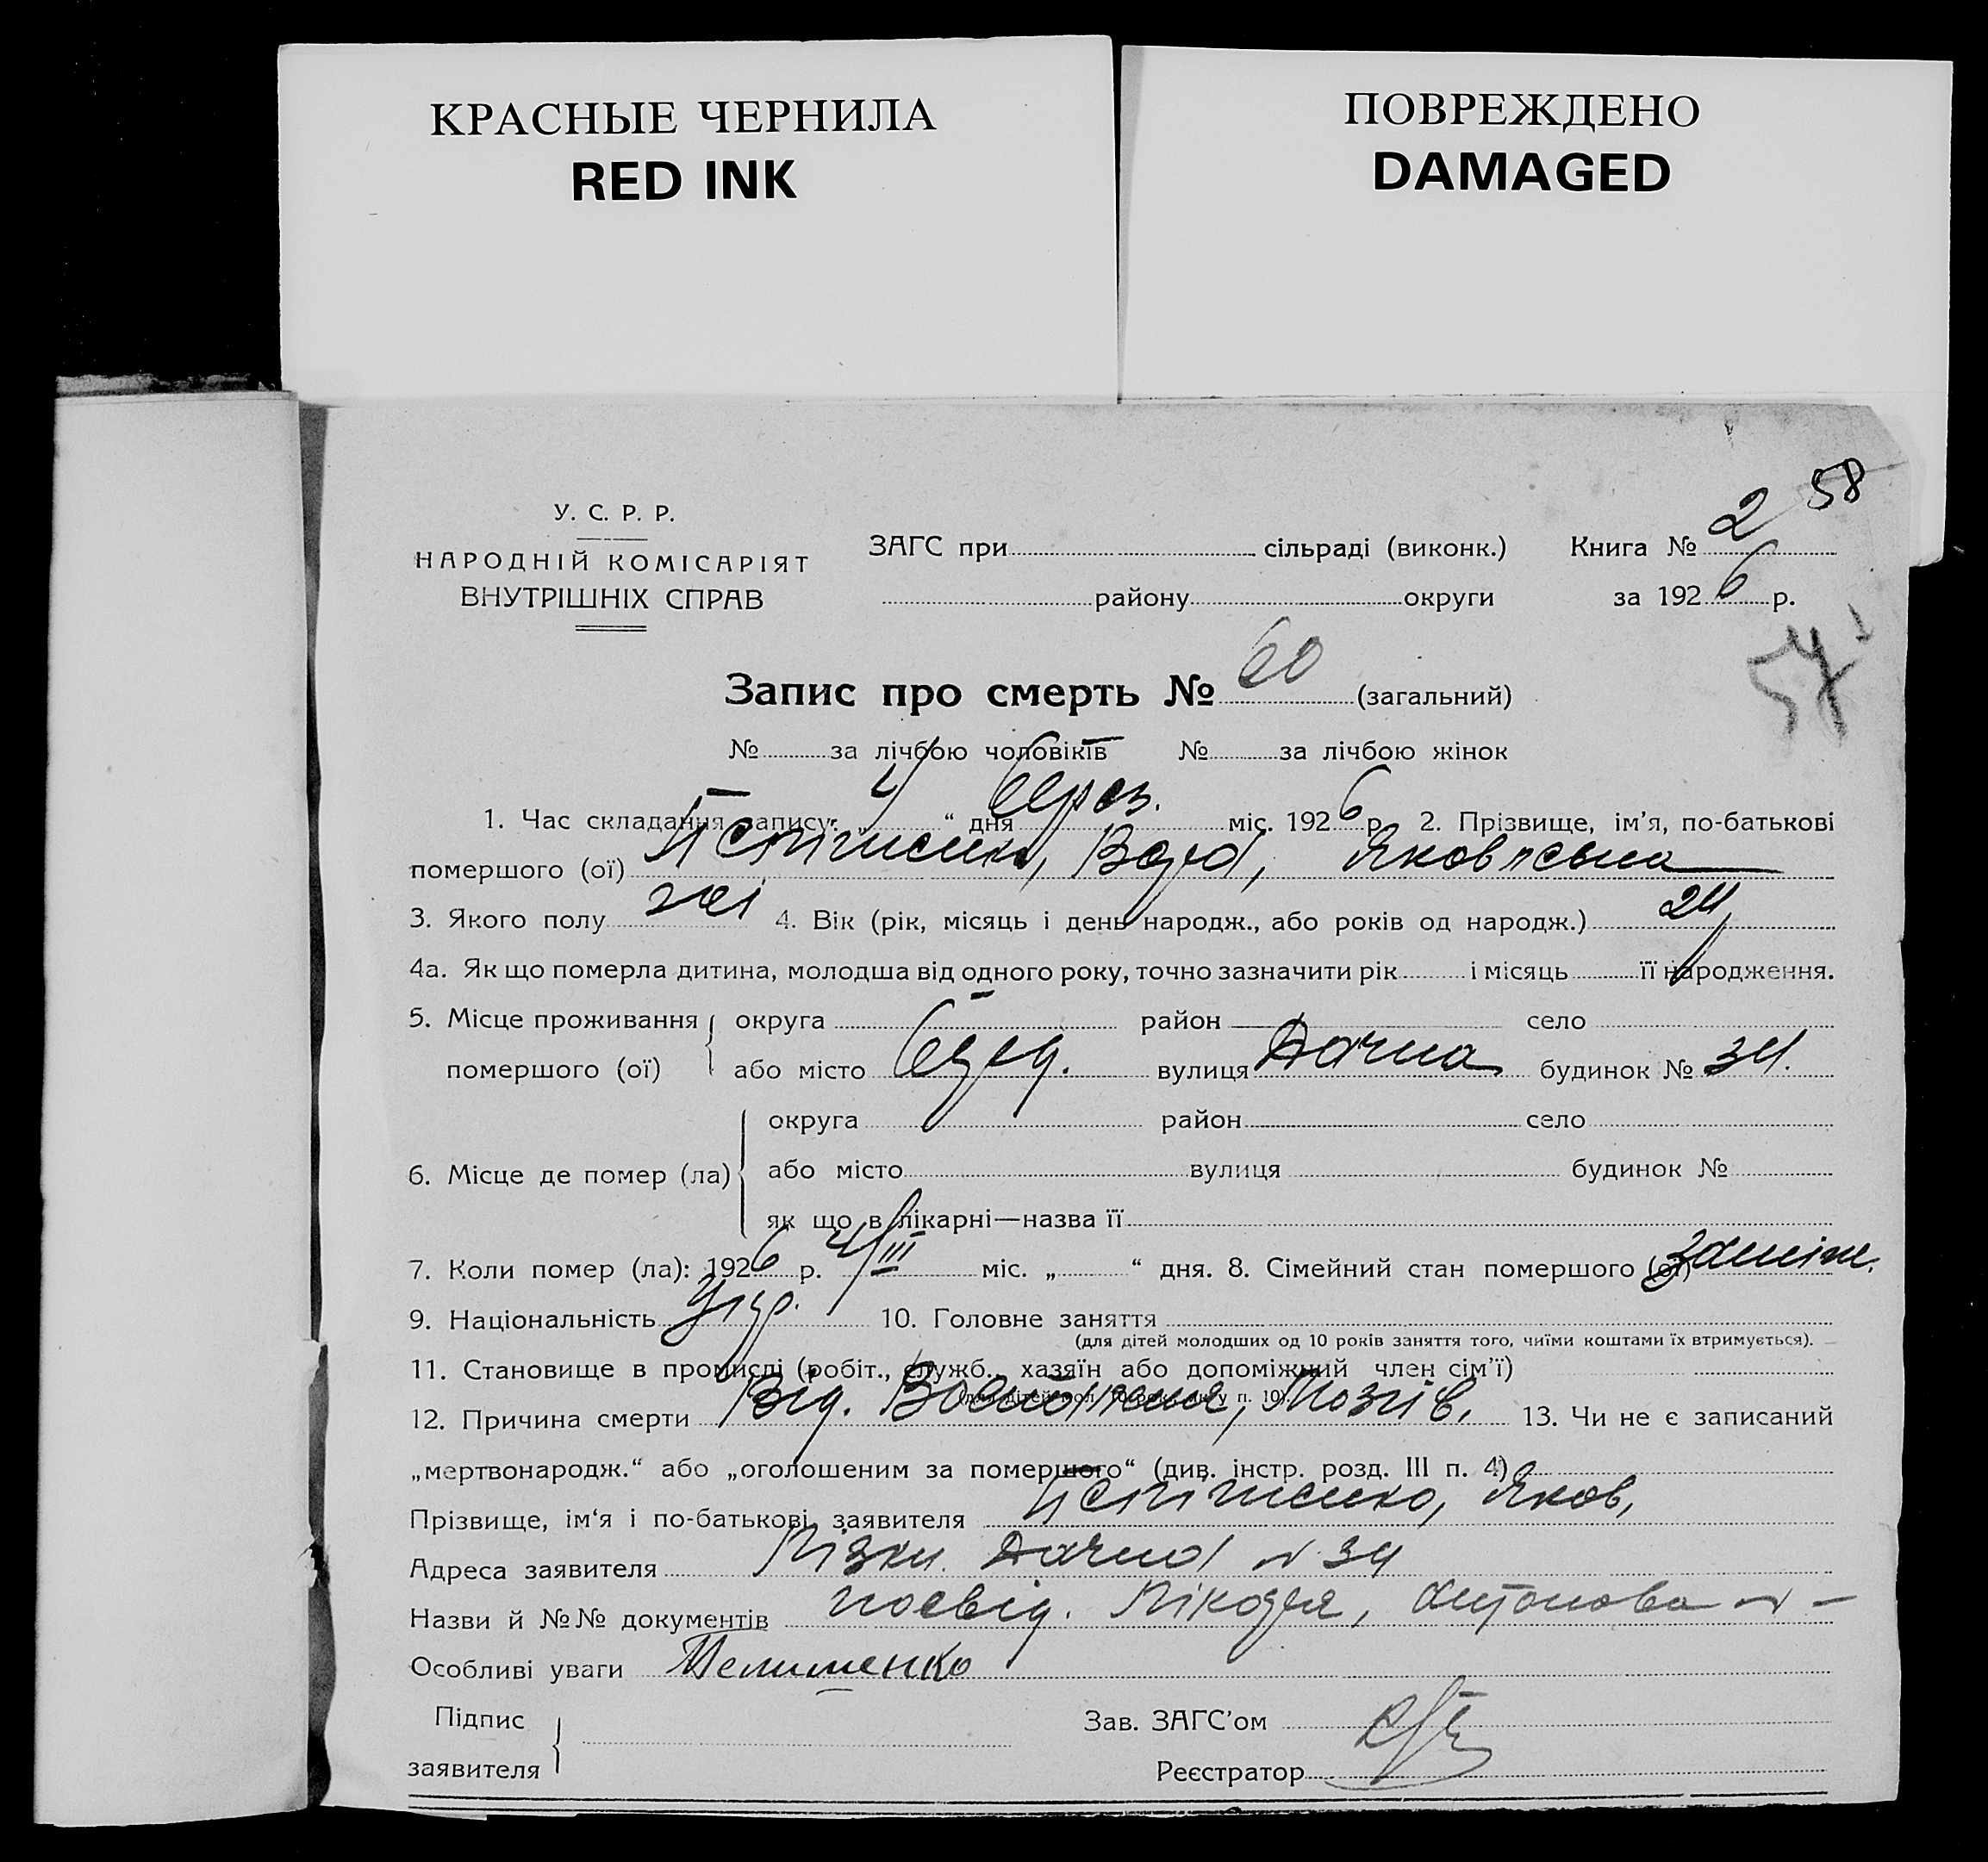 КРАСНЫЕ ЧЕРНИЛА
RED INK
ПОВРЕЖДЕНО
DAMAGED
58
У. С. Р. Р.
НАРОДНІЙ КОМІСАРІЯТ
ВНУТРІШНІХ СПРАВ
ЗАГС при сільраді (виконк.) Книга № 2
району округи за 1926 р.
Запис про смерть № 60 (загальний)
№ за лічбою чоловіків № за лічбою жінок
1. Час складання запису: „4“ дня берез. міс. 1926 р. 2. Прізвище, ім’я, по-батькові
помершого (ої) Яковлєвна
3. Якого полу жі 4. Вік (рік, місяць і день народж., або років од народж.) 24
4а. Як що померла дитина, молодша від одного року, точно зазначити рік і місяць її народження.
5. Місце проживання округа район село
помершого (ої) або місто вулиця Дачна будинок № 34.
округа район село
6. Місце де помер (ла) або місто вулиця будинок №
як що в лікарні—назва її
7. Коли помер (ла): 1926 р. 4/III міс. „ “ дня. 8. Сімейний стан помершого (ої) заміж.
9. Національність Укр. 10. Головне заняття
(для дітей молодших од 10 років заняття того, чиїми коштами їх втримується).
11. Становище в промислі (робіт., служб., хазяїн або допоміжний член сім’ї)
12. Причина смерти Від. мозгів. 13. Чи не є записаний
„мертвонародж.“ або „оголошеним за помершого“ (див. інстр. розд. III п. 4)
Прізвище, ім‘я і по-батькові заявителя Яков,
Адреса заявителя Дачна № 34
Назви й №№ документів посвід. Лікаря, Антонова № —
Особливі уваги
Підпис
заявителя
Зав. ЗАГС’ом
Реєстратор